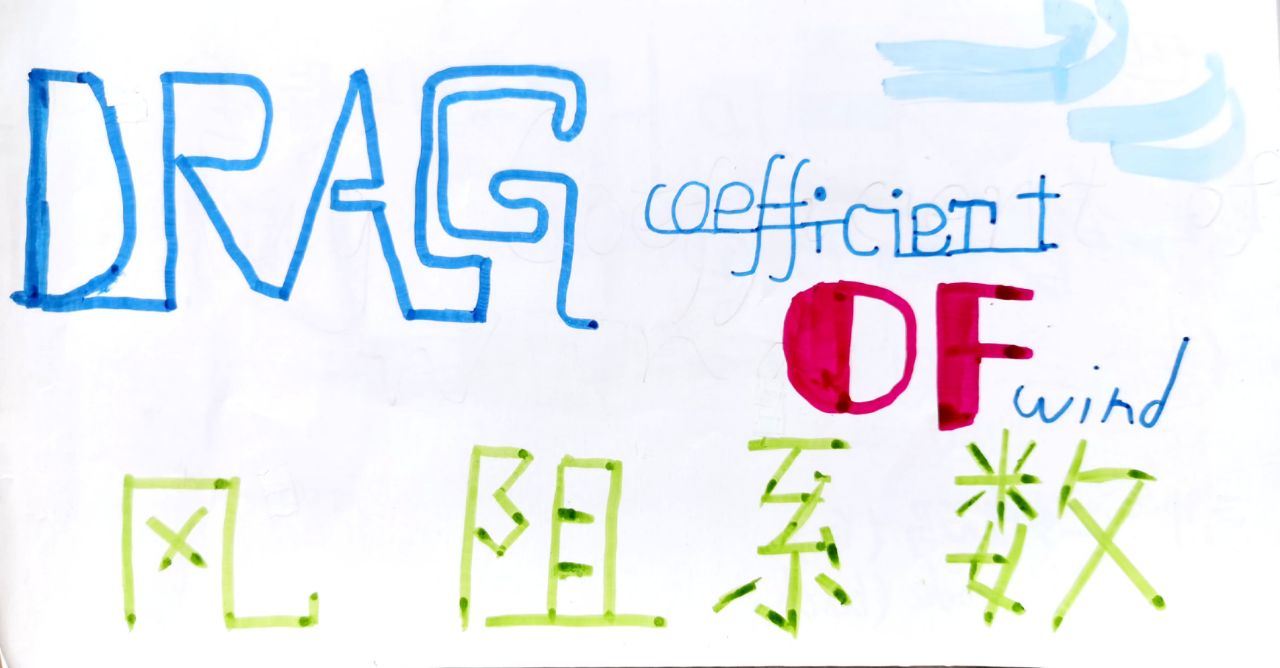 DRAG coefficient
OF wind
风阻系数